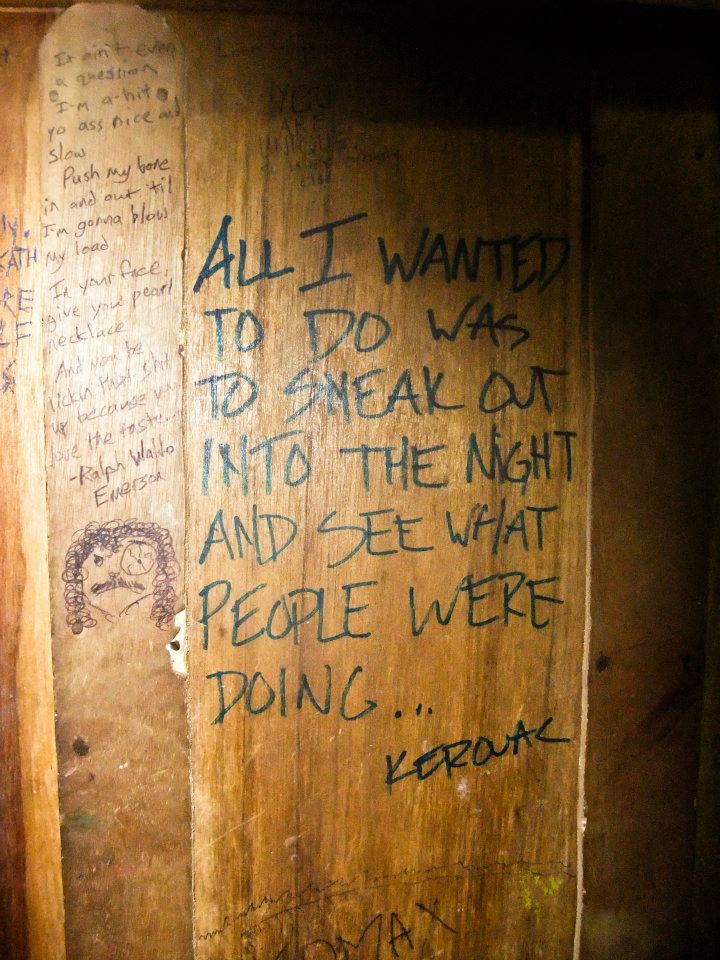 It ain't even
a question
I-m a-hit
yo ass nice and
slow
Push my bone
in and out 'til
I'm gonna blow
my load
In your face,
give you pearl
necklace
And you be
lickin that shit
up because you
love the taste...
-Ralph Waldo
Emerson
YOU
ARE
UNIQUE,
else.
ALL I WANTED
TO DO WAS
TO SNEAK OUT
INTO THE NIGHT
AND SEE WHAT
PEOPLE WERE
DOING...
KEROUAC